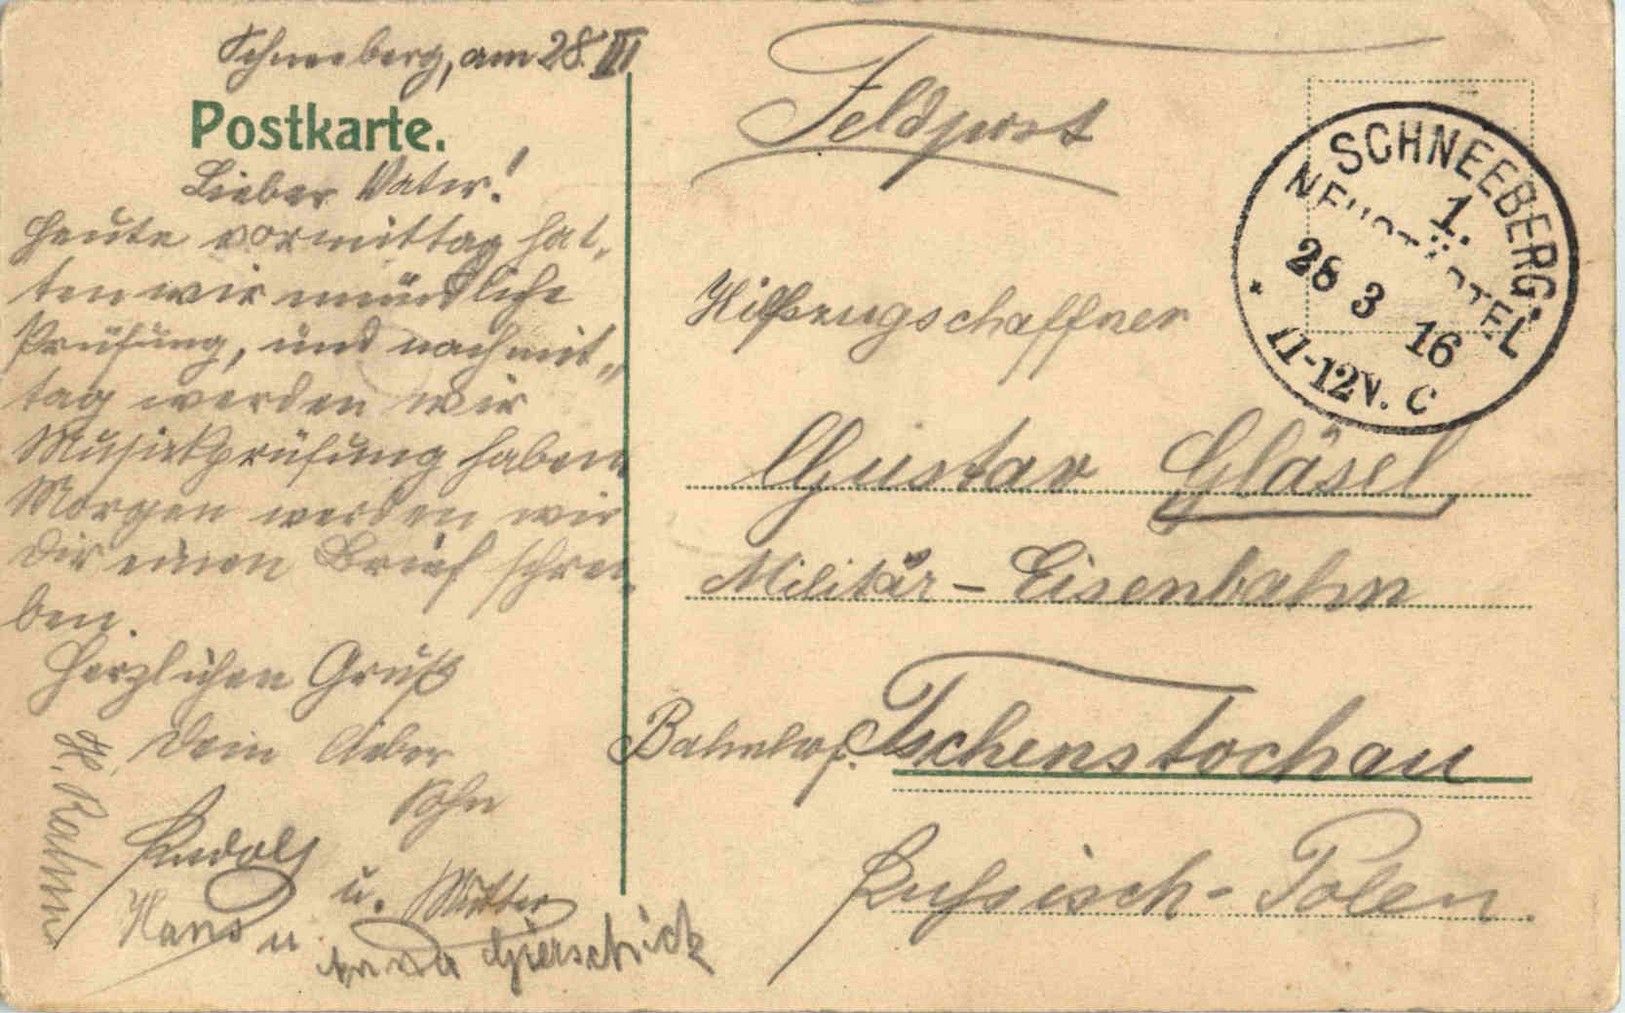 Schneeberg, am 28. III
Postkarte.
Lieber Vater!
Heute vormittag hat-
ten wir mündliche
Prüfung, und nachmit-
tag werden wir
Musikprüfung haben.
Morgen werden wir
Dir einen Brief schrei-
ben.
Herzlichen Gruß
Dein lieber
Sohn
Rudolf
u. Mutter
Hans u.
H. Rahm
Feldpost
Hilfszugschaffner
Gustav Gläsel
Militär-Eisenbahn
Bahnhof. Tschenstochau
Russisch-Polen.
SCHNEEBERG-
NEUSTÄDTEL
1.
28 3 16
11-12V. C